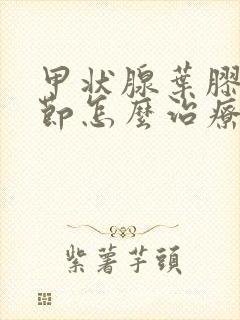 甲状腺葉膠
節怎麼治療
紫薯芋頭